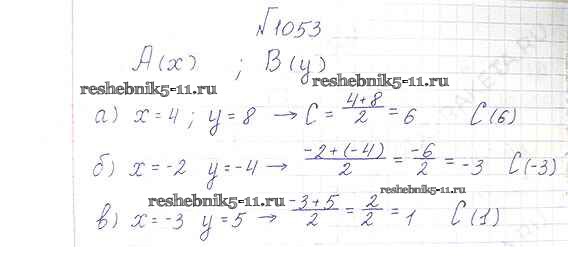 √1053
A(x) ; B(y)
reshebnik5-11.ru
reshebnik5-11.ru
а) x = 4 ; y = 8 → C = \frac{4+8}{2} = 6 C(6)
б) x = -2 y = -4 → \frac{-2+(-4)}{2} = \frac{-6}{2} = -3 C(-3)
reshebnik5-11.ru
reshebnik5-11.ru
в) x = -3 y = 5 → \frac{-3+5}{2} = \frac{2}{2} = 1 C(1)